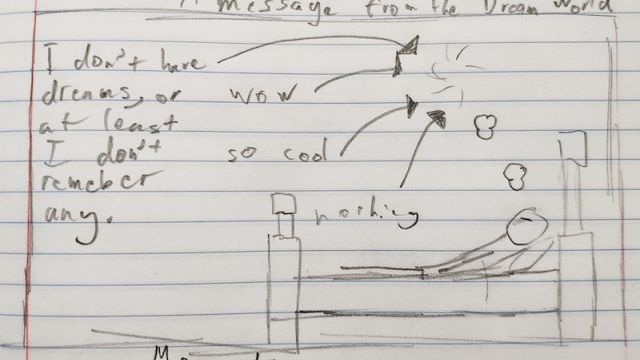 A Message from the Dream World
I don't have
dreams, or
at least
I don't
remeber
any.
wow
so cool
nothing